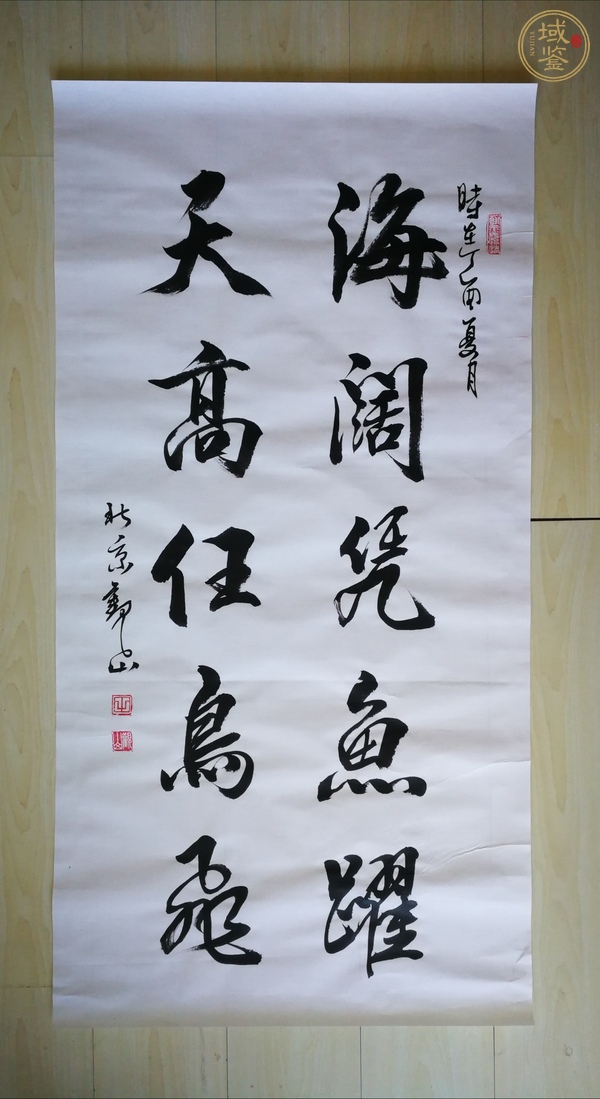 時在丁酉夏月
海闊凭魚躍
天高任鳥飛
北京
山
域鉴
YUJIAN